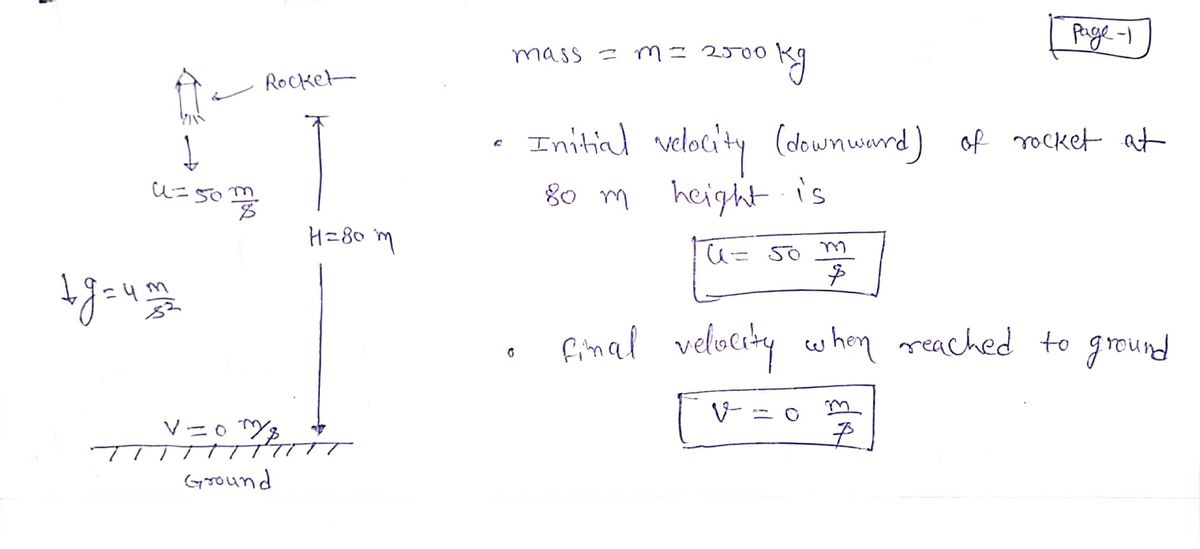 Page-1
Rocket
u=50 m/s
H=80 m
↓g=4 m/s²
V=0 m/s
Ground
mass = m = 2500 kg
• Initial velocity (downward) of rocket at
80 m height is
u= 50 m/s
• final velocity when reached to ground
v = 0 m/s